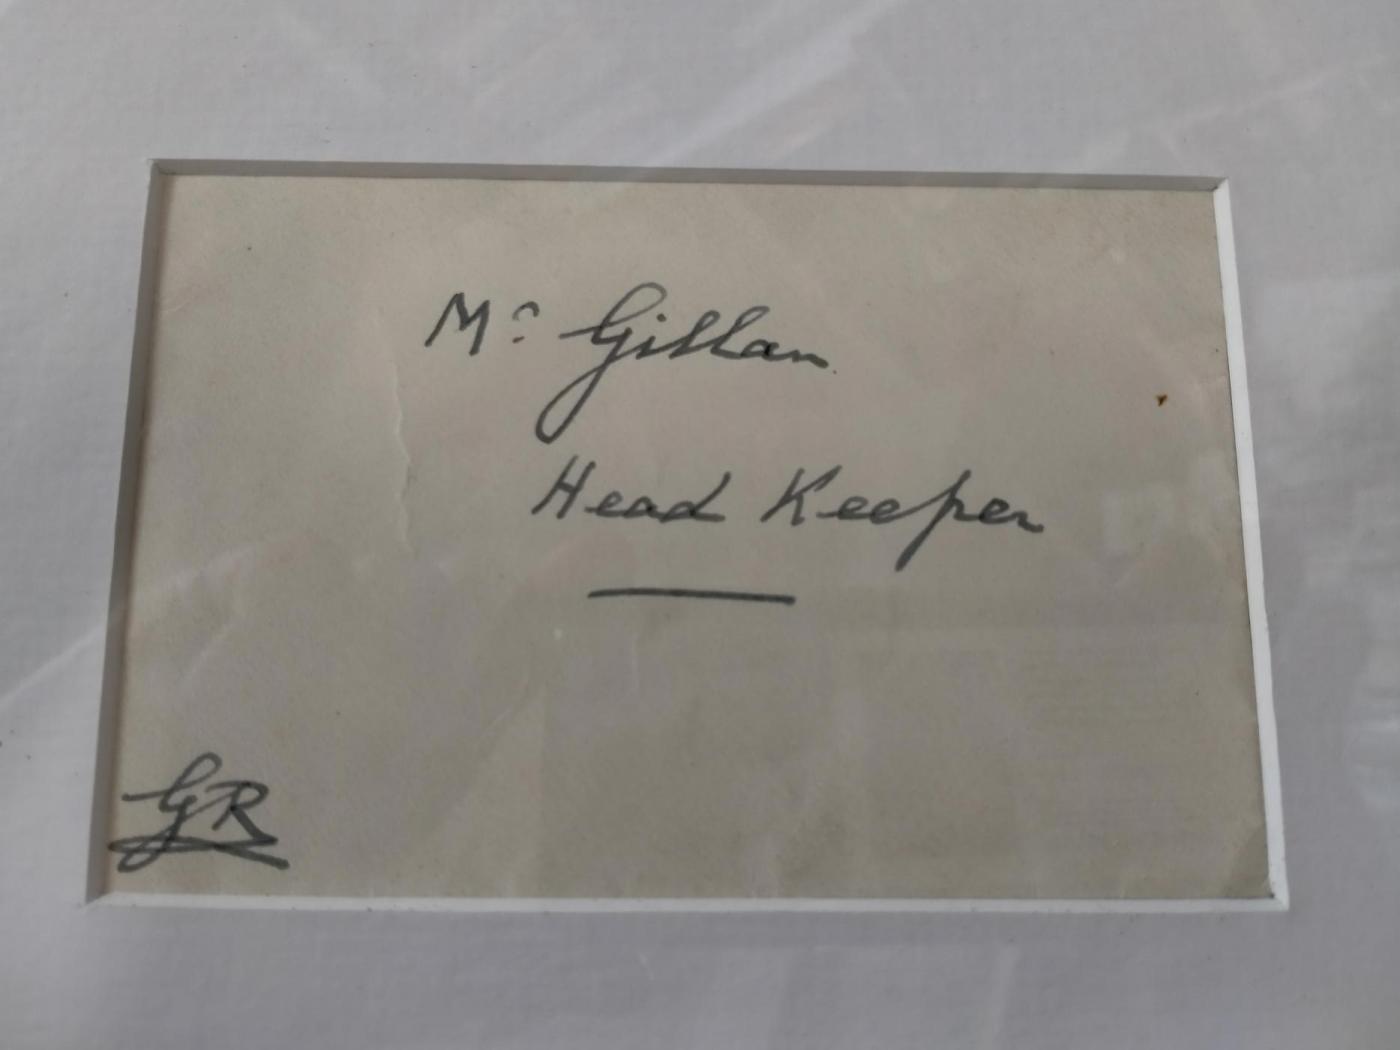 Mr. Gillan
Head Keeper
GR